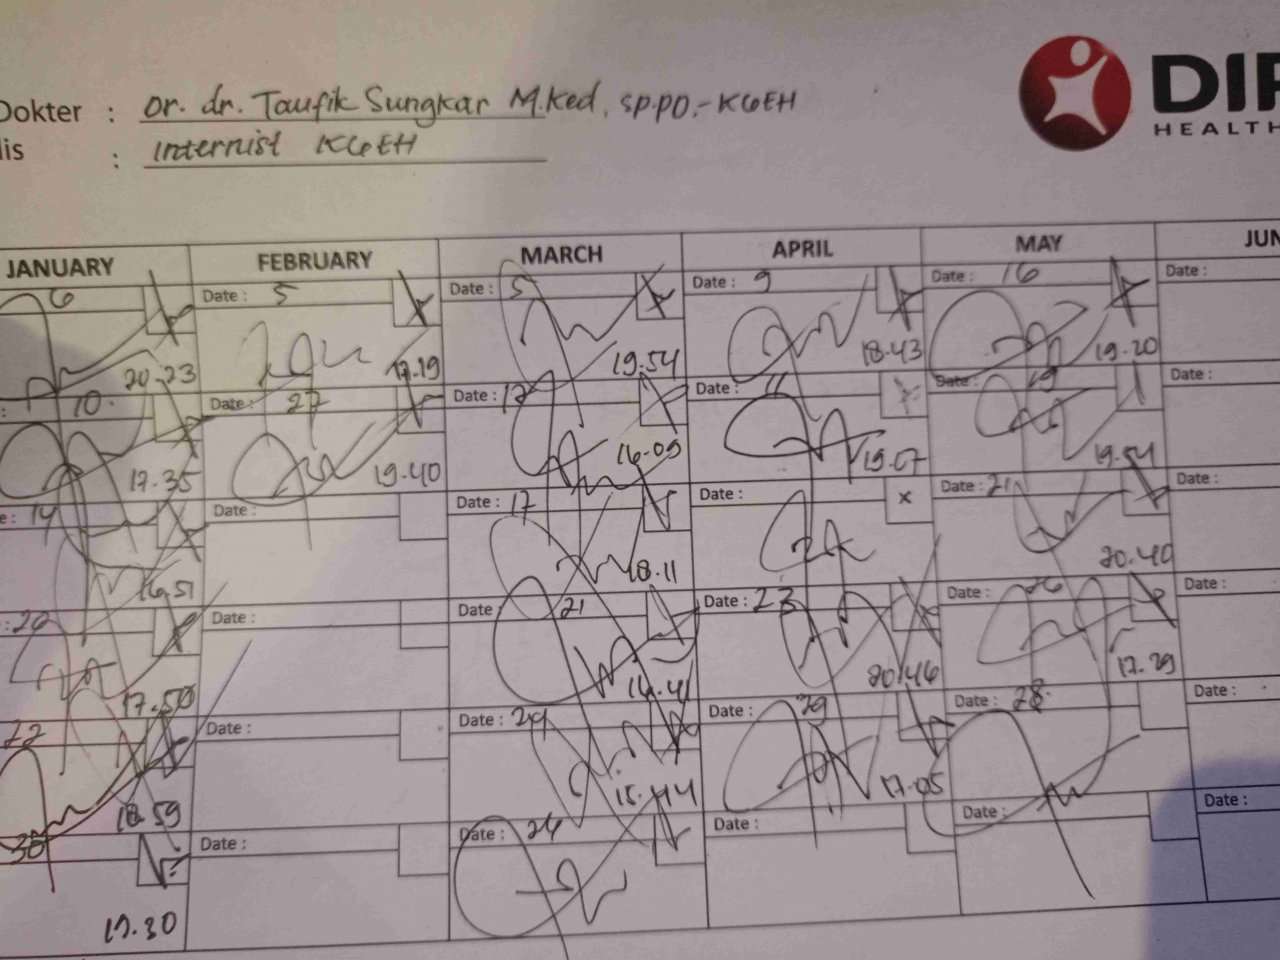 Dokter : Dr. dr. Taufik Sungkar M.Ked, SP.PD.-KGEH
lis : Internist KGEH
DIF
HEALTH
JANUARY FEBRUARY MARCH APRIL MAY JUN
6 Date : 5 Date : 5 Date : 9 Date : 16 Date :
20.23 17.19 19.54 18.43 19.20
: 10. Date : 27 Date : 12 Date : 11 Date : 19 Date :
17.35 19.40 16.09 19.07 19.54
e: 14 Date : Date : 17 Date : x Date : 21 Date :
16.51 18.11 20.40
: 20 Date : Date : 21 Date : 23 Date : 26 Date :
17.50 16.41 20.46 17.29
22 Date : Date : 24 Date : 29 Date : 28. Date :
18.59 15.44 17.05
30 Date : Date : 26 Date : Date : Date :
17.30